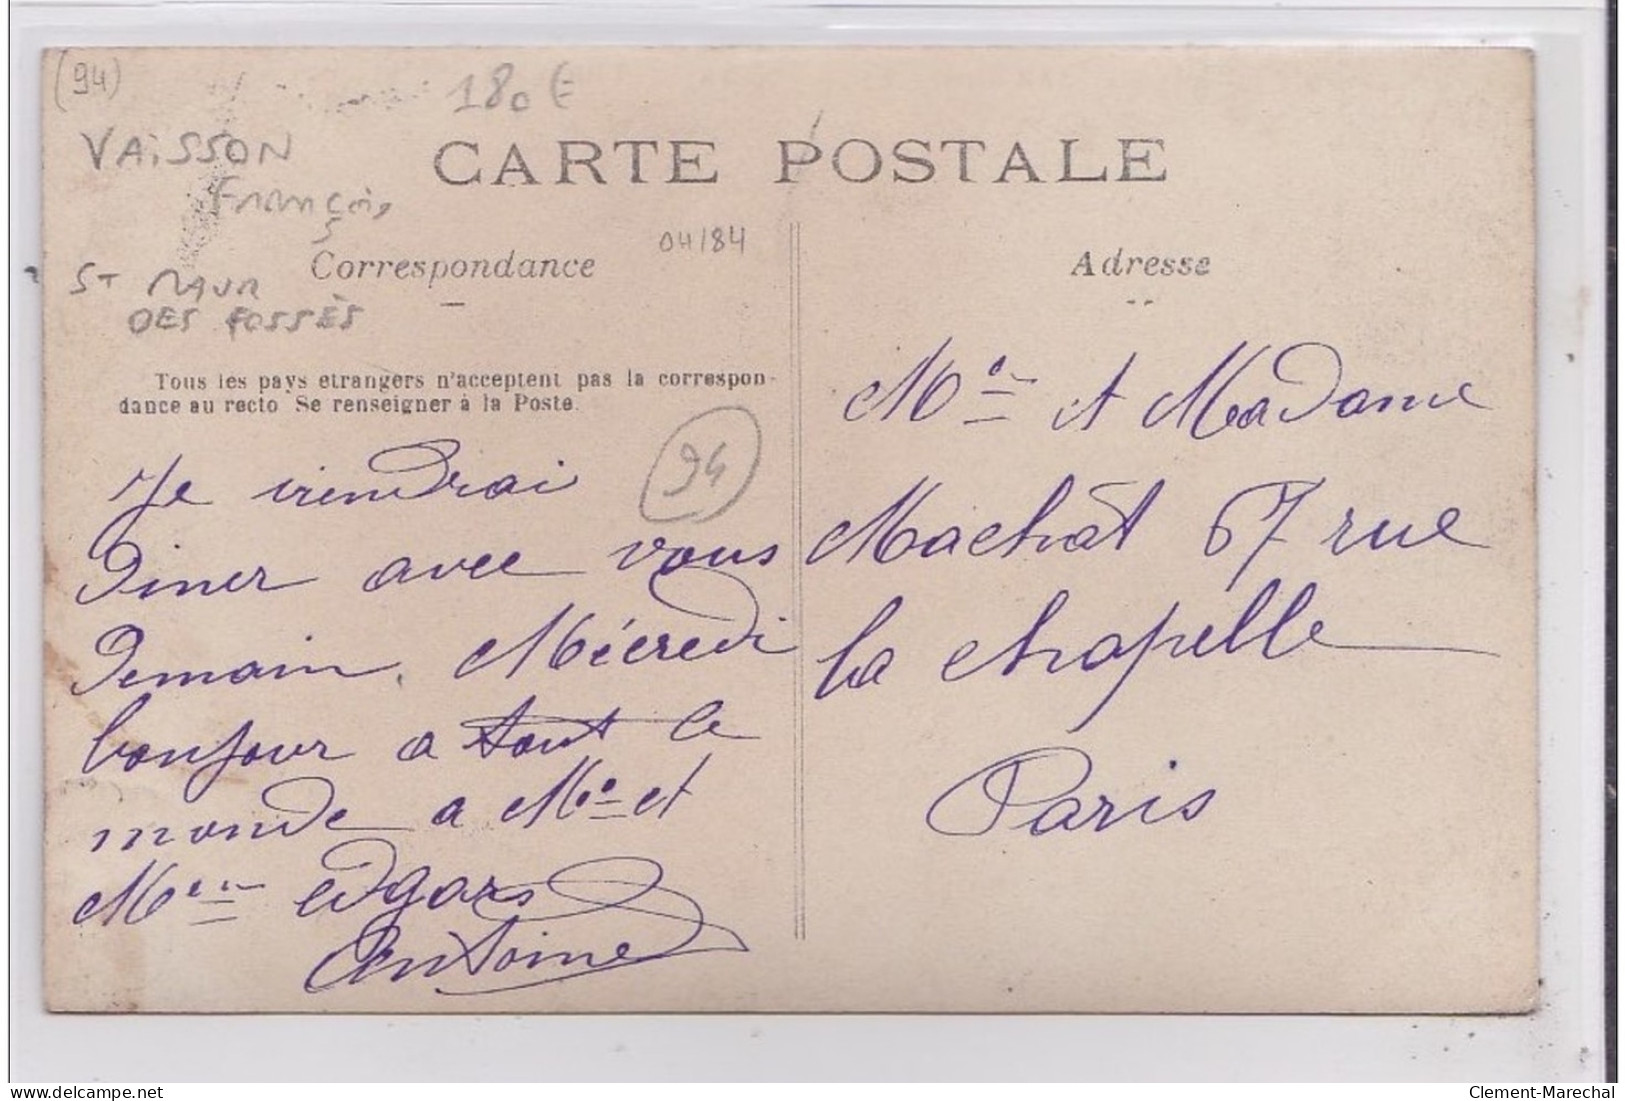 (94)
180€
VAISSON
François
CARTE POSTALE
04/84
Correspondance
ST MAUR
DES FOSSÈS
Tous les pays etrangers n'acceptent pas la correspon-
dance au recto Se renseigner à la Poste.
94
Je viendrai
Diner avec vous
Demain, Mécredi
bonjour a tout le
monde a Mr et
Mme edgars
Antoine
Adresse
Mr et Madame
Machât 67 rue
la chapelle
Paris
delcampe.net
Clement-Marechal